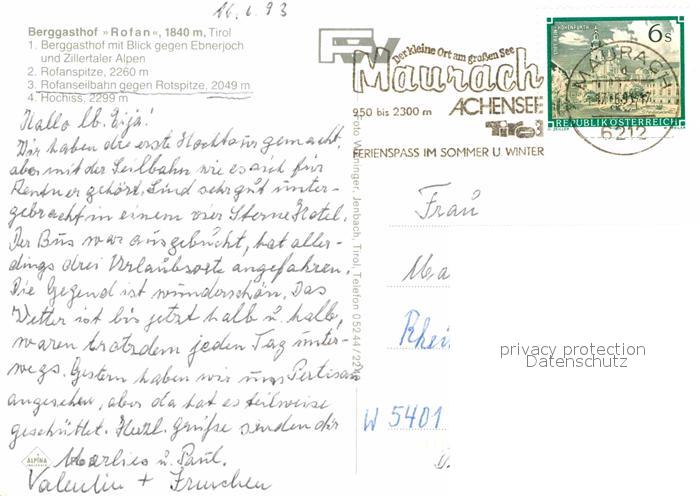 16.6.93
Berggasthof »Rofan«, 1840 m, Tirol
1. Berggasthof mit Blick gegen Ebnerjoch
und Zillertaler Alpen
2. Rofanspitze, 2260 m
3. Rofanseilbahn gegen Rotspitze, 2049 m
4. Hochiss, 2299 m
Hallo lb. Eija!
Wir haben die erste Hochtour gemacht,
aber mit der Seilbahn wie es sich für
Rentner gehört. Sind sehr gut unter-
gebracht in einem vier Sterne Hotel.
Der Bus war ausgebucht, hat aller-
dings drei Urlaubsorte angefahren.
Die Gegend ist wunderschön. Das
Wetter ist bis jetzt halb u. halb,
waren trotzdem jeden Tag unter-
wegs. Gestern haben wir uns Pertisau
angesehen, aber da hat es teilweise
geschüttet. Herzl. Grüße senden dir
Marlies u. Paul.
Valentin +
ALPINA
Foto Jenbach, Tirol, Telefon 05244/22
Der kleine Ort am großen See
Maurach
ACHENSEE
950 bis 2300 m
Tirol
FERIENSPASS IM SOMMER U. WINTER
6 s
REPUBLIK ÖSTERREICH
MAURACH
6212
Frau
Ma
Rhei
W 5401
privacy protection
Datenschutz